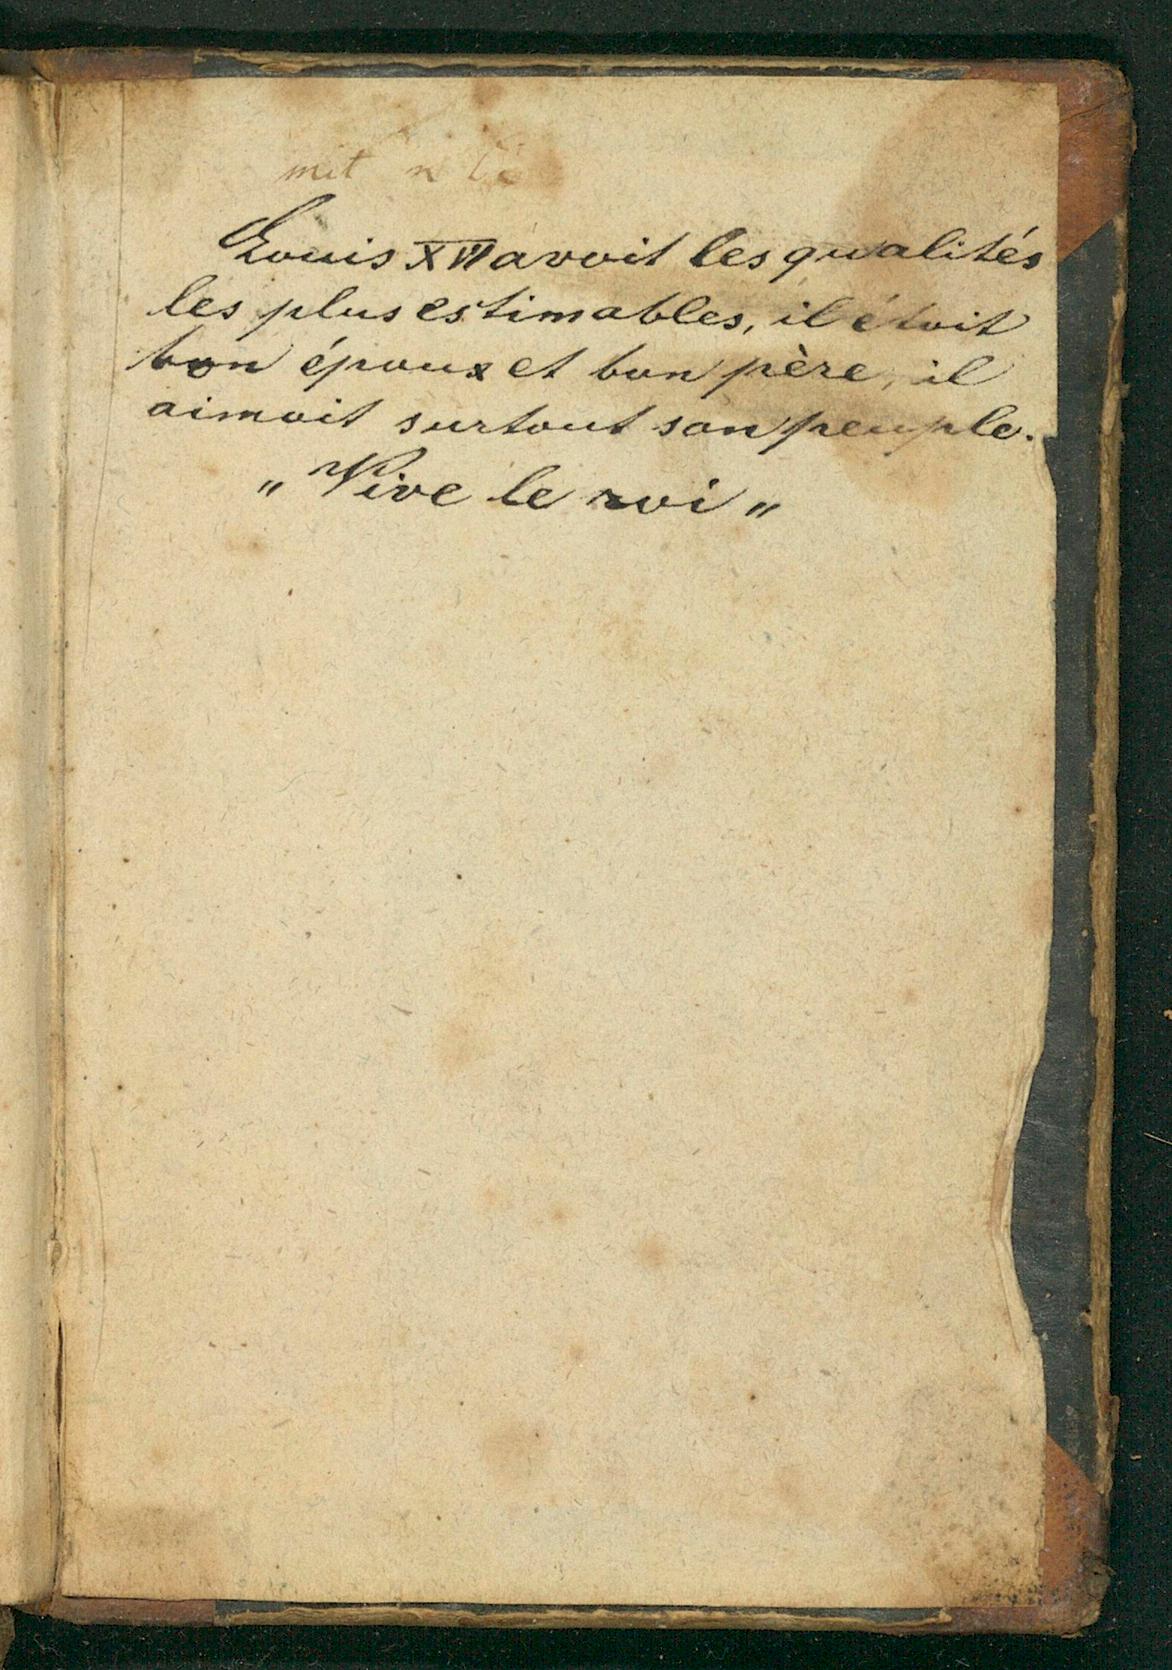 mit
Louis XVI avoit les qualités
les plus estimables, il étoit
bon époux et bon père, il
aimoit surtout son peuple.
„ Vive le roi „